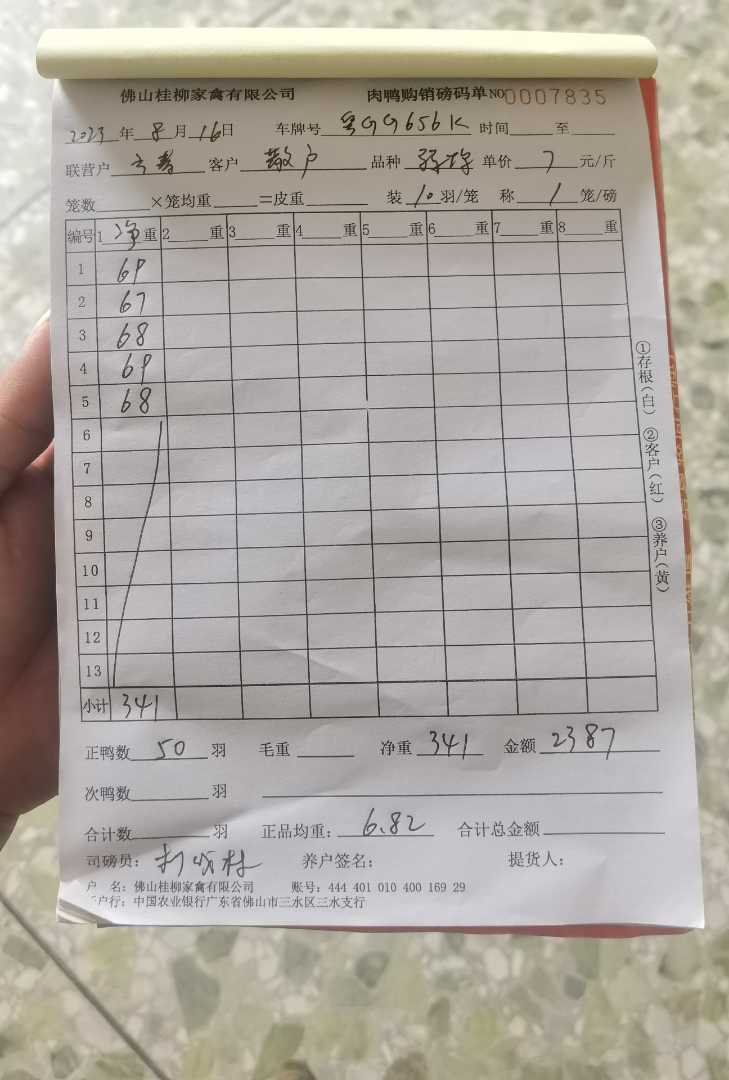 佛山桂柳家禽有限公司 肉鸭购销磅码单 NO 0007835
2023年8月16日 车牌号 粤GG656K 时间 至
联营户 客户 散户 品种 单价 7 元/斤
笼数 ×笼均重 =皮重 装 10 羽/笼 称 1 笼/磅
编号 1 净 重 2 重 3 重 4 重 5 重 6 重 7 重 8 重
1 69
2 67
3 68
4 69
5 68
6
7
8
9
10
11
12
13
小计 341
正鸭数 50 羽 毛重 净重 341 金额 2387
次鸭数 羽
合计数 羽 正品均重: 6.82 合计总金额
司磅员: 养户签名: 提货人:
户 名: 佛山桂柳家禽有限公司 账号: 444 401 010 400 169 29
户行: 中国农业银行广东省佛山市三水区三水支行
①存根(白) ②客户(红) ③养户(黄)